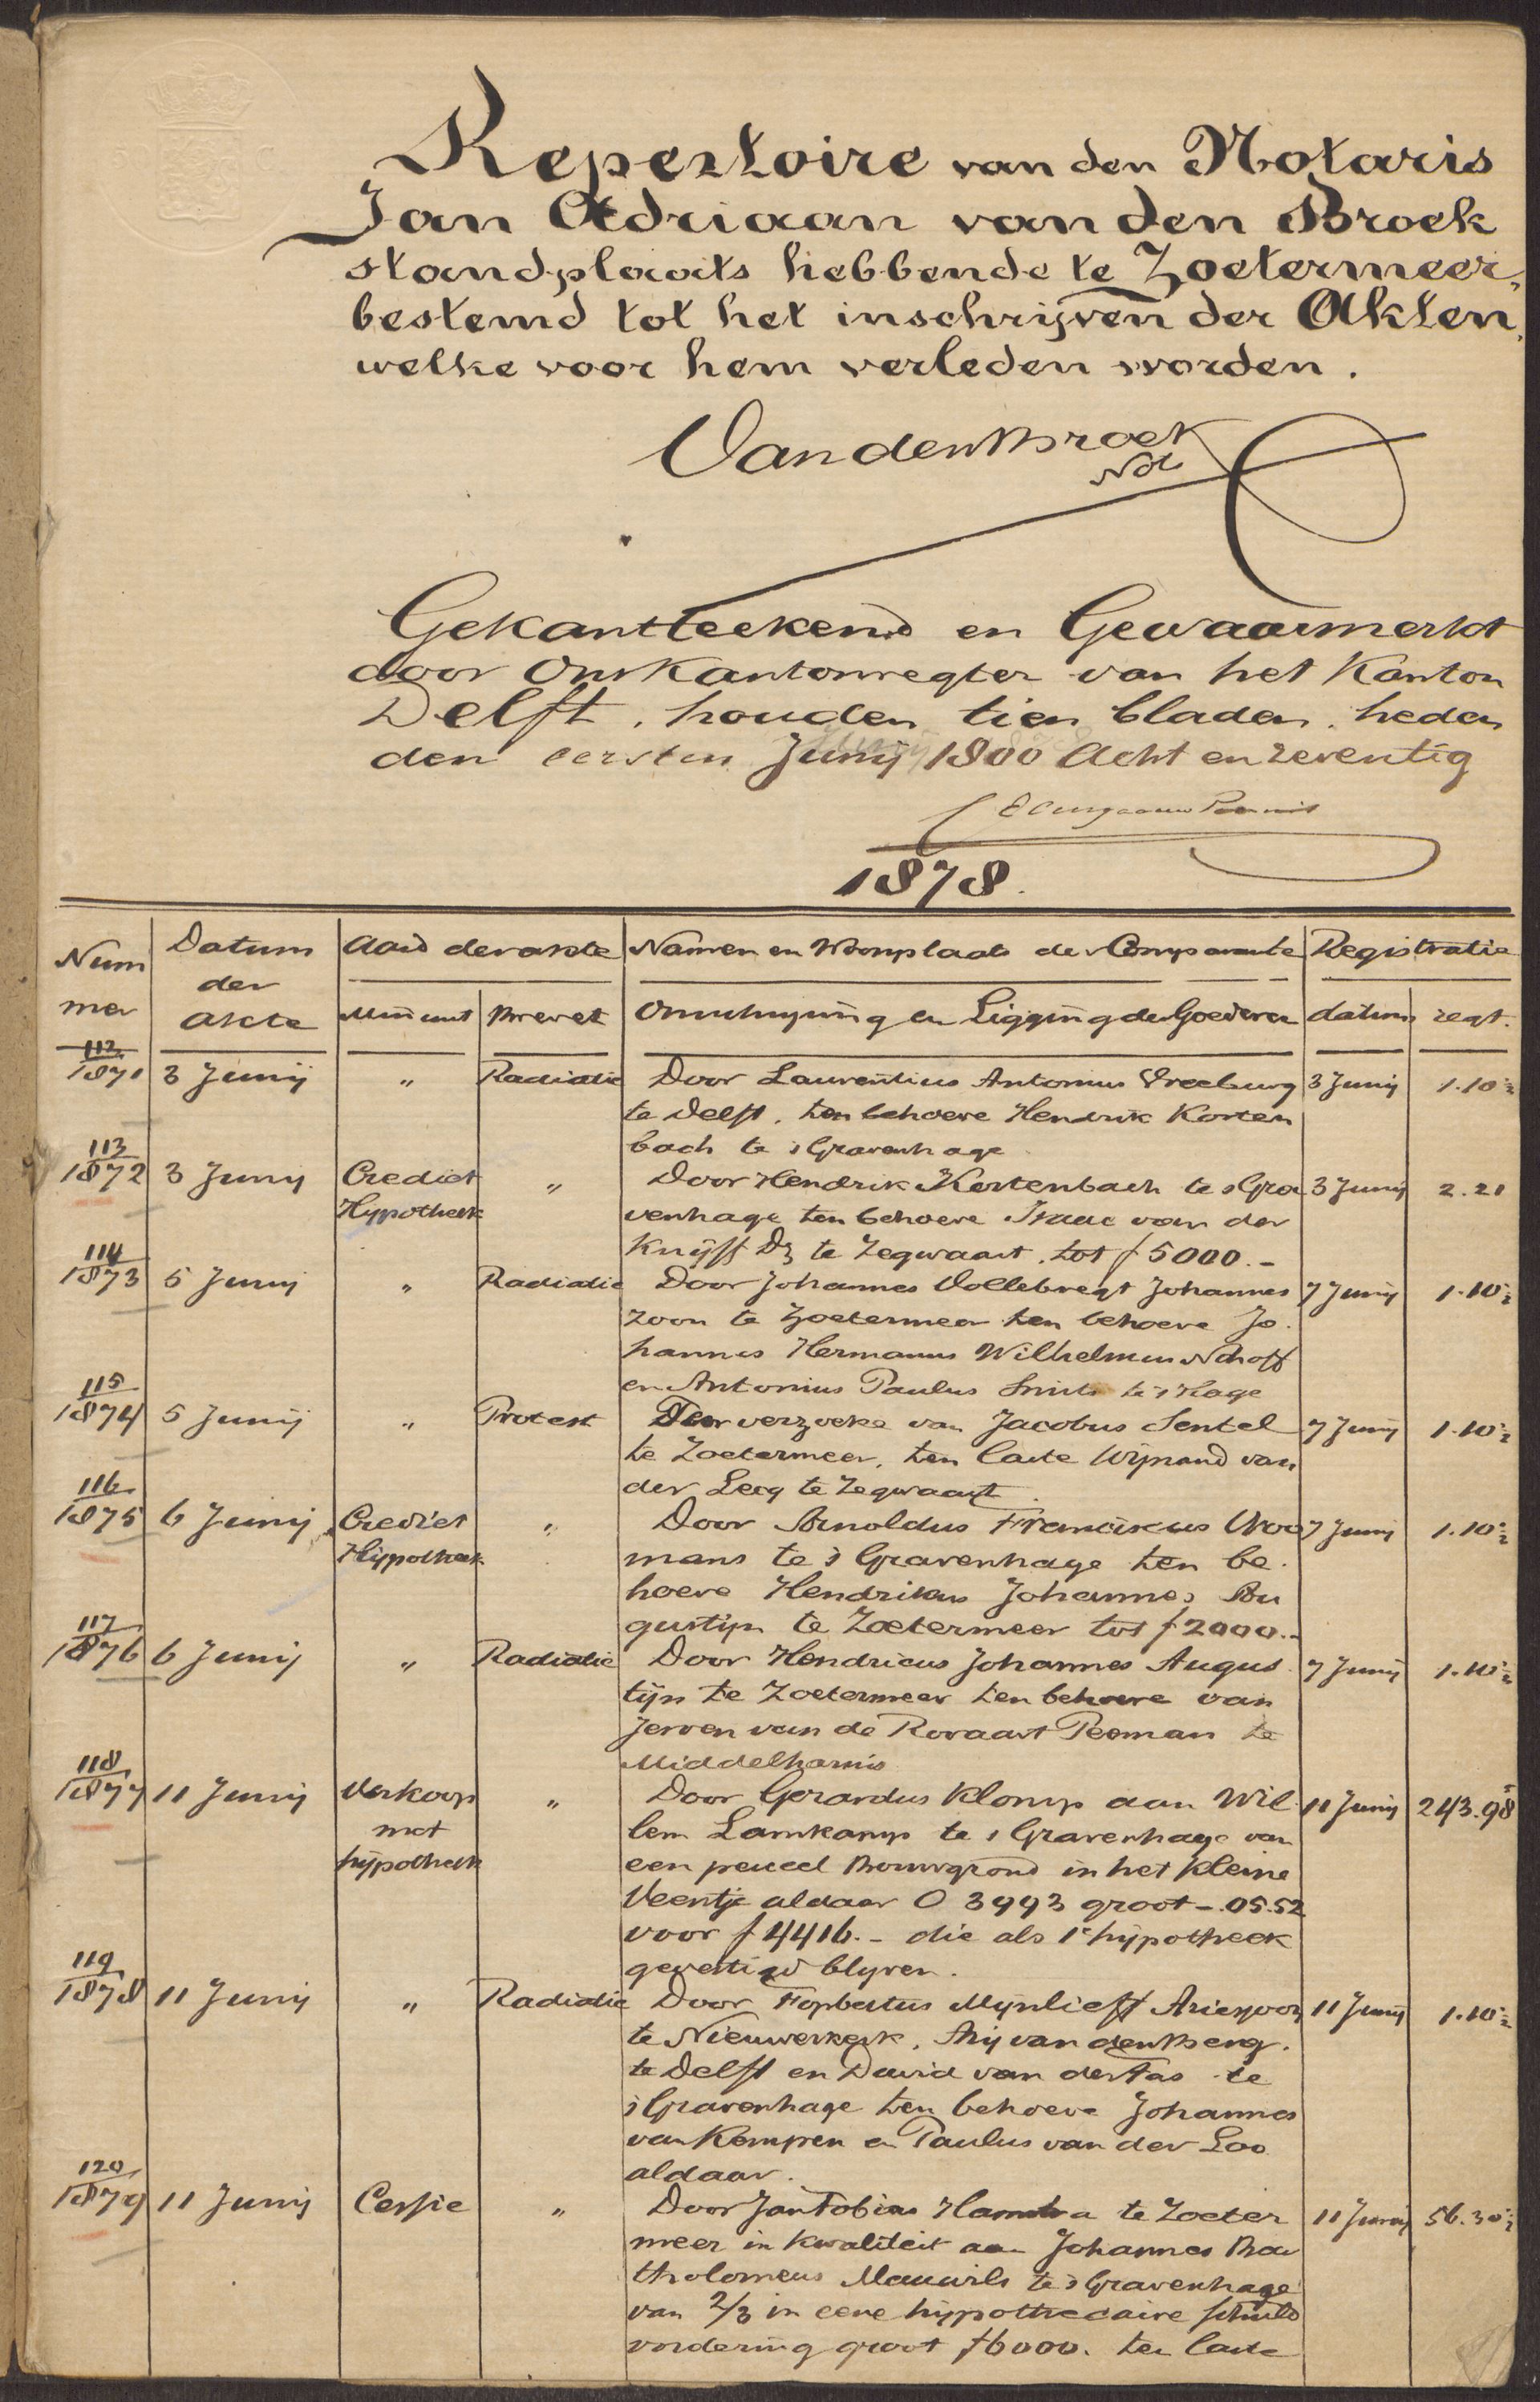 Repertoire van den Notaris
Jan Adriaan van den Broek
standplaats hebbende te Zoetermeer,
bestemd tot het inschrijven der Akten,
welke voor hem verleden worden.
VandenBroek
Not
Gekantteekend en Gewaarmerkt
door Ons Kantonregter van het Kanton
Delft, houden tien bladen, heden
den eersten Junij 1800 Acht en zeventig
1878.
Num
mer
Datum
der
Akte
Aard der akte
Minuut
Brevet
Namen en Woonplaats der Comparanten
Omschrijving en Ligging der Goederen
Registratie
datum
regt.
112
1871 3 Junij " Radiatie Door Laurentius Antonius Vreeburg 3 Junij 1.10½
te Delft, ten behoeve Hendrik Korten
bach te sGravenhage
113
1872 3 Junij Crediet " Door Hendrik Kortenbach te sGra 3 Junij 2.21
Hypotheek venhage ten behoeve Isaac van der
Knijff Dz te Zegwaart, tot f 5000.-
114
1873 5 Junij " Radiatie Door Johannes Vollebregt Johannes 7 Junij 1.10½
zoon te Zoetermeer ten behoeve Jo
hannes Hermanus Wilhelmus Nohoff
en Antonius Paulus Smits te sHage
115
1874 5 Junij " Protest Ten verzoeke van Jacobus Sentel 7 Junij 1.10½
te Zoetermeer, ten laste Wijnand van
der Leeg te Zegwaart.
116
1875 6 Junij Crediet " Door Arnoldus Franciscus Woo 7 Junij 1.10½
Hijpotheek mans te s Gravenhage ten be
hoeve Hendrikus Johannes Au
gustijn te Zoetermeer tot f 2000.-
117
1876 6 Junij " Radiatie Door Hendricus Johannes Augus 7 Junij 1.10½
tijn te Zoetermeer ten behoeve van
Jeroen van de Rovaart Peeman te
Middelharnis
118
1877 11 Junij Verkoop " Door Gerardus Klomp aan Wil 11 Junij 243.98
met lem Lamkamp te s Gravenhage van
hijpotheek een perceel Bouwgrond in het Kleine
Veentje aldaar O 3993 groot -.05.52
voor f 4416.- die als 1e hijpotheek
gevestigd blijven.
119
1878 11 Junij " Radiatie Door Fopbertus Mijnlieff Arieszoon 11 Junij 1.10½
te Nieuwerkerk, Arij van den Berg.
te Delft en David van der Tas te
sGravenhage ten behoeve Johannes
van Kempen en Paulus van der Loo
aldaar.
120
1879 11 Junij Cessie " Door Jan Tobias Hamstra te Zoeter 11 Junij 56.30½
meer in Kwaliteit aan Johannes Bar
tholomeus te sGravenhage
van 2/3 in eene hijpothecaire schuld
vordering groot f 6000. ten laste